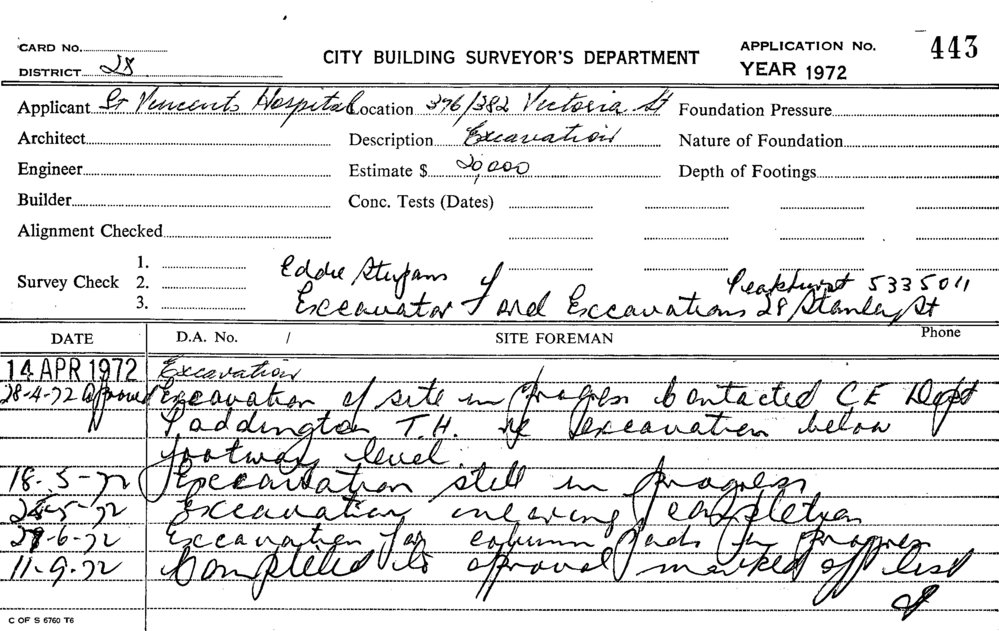 CARD No.
DISTRICT 28
CITY BUILDING SURVEYOR'S DEPARTMENT
APPLICATION No. 443
YEAR 1972
Applicant St Vincents Hospital Location 376/382 Victoria St Foundation Pressure
Architect Description Excavation Nature of Foundation
Engineer Estimate $ 20,000 Depth of Footings
Builder Conc. Tests (Dates)
Alignment Checked
Survey Check 1.
2. Eddie Peakhurst 5335011
3. Excavator Ford Excavations 28 Stanley St
DATE D.A. No. / SITE FOREMAN Phone
14 APR 1972 Excavation
28-4-72 Approved Excavation of site in progress Contacted C E Dept
Paddington T.H. re excavation below
footway level.
18-5-72 Excavation still in progress
25-5-72 Excavation nearing completion
28-6-72 Excavation for column pads in progress
11-9-72 Completed to aproval marked off list
C OF S 6760 T6